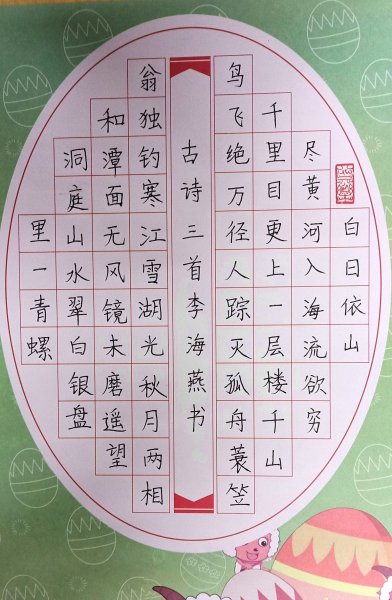 白日依山
尽黄河入海流欲穷
千里目更上一层楼千山
鸟飞绝万径人踪灭孤舟蓑笠
古诗三首李海燕书
翁独钓寒江雪湖光秋月两相
和潭面无风镜未磨遥望
洞庭山水翠白银盘
里一青螺